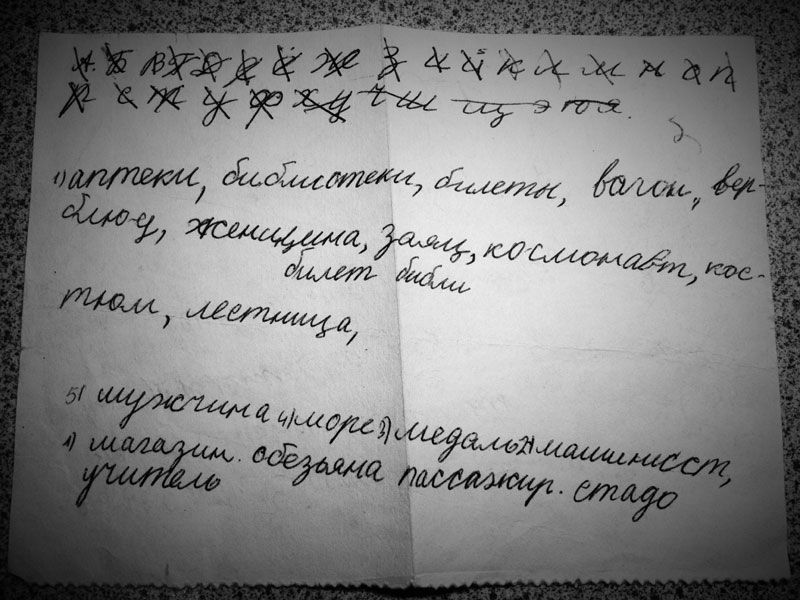 А Б В Г Д Е Ё Ж З И Й К Л М Н О П
Р С Т У Ф Х Ц Ч Ш Щ Э Ю Я.
1) аптеки, библиотеки, билеты, вагон, вер-
блюд, женщина, заяц, космонавт, кос-
билет библи
тюм, лестница,
5) мужчина 4) море 3) медаль 2) машинисст,
1) магазин. обезьяна пассажир. стадо
учитель